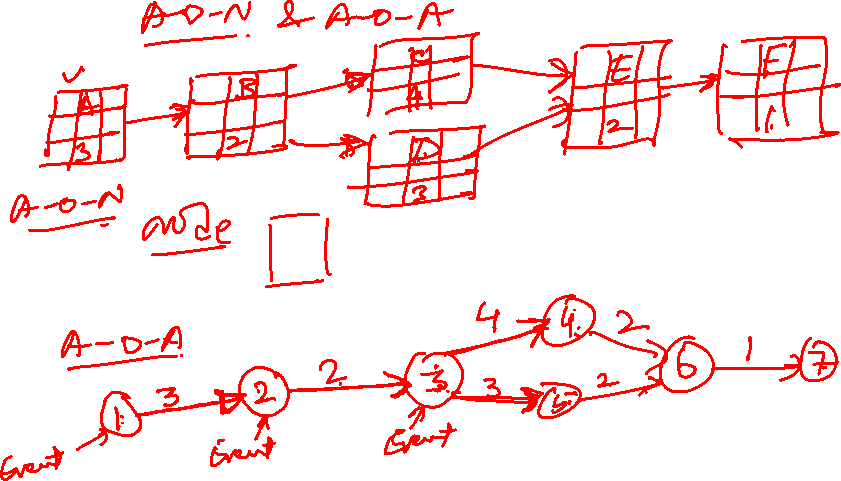 A-O-N & A-O-A
A 3
B 2
C 4
D 3
E 2
F 1
A-O-N
node
A-O-A
1 3 2 2 3 4 4 2 6 1 7
3 5 2
Event Event Event